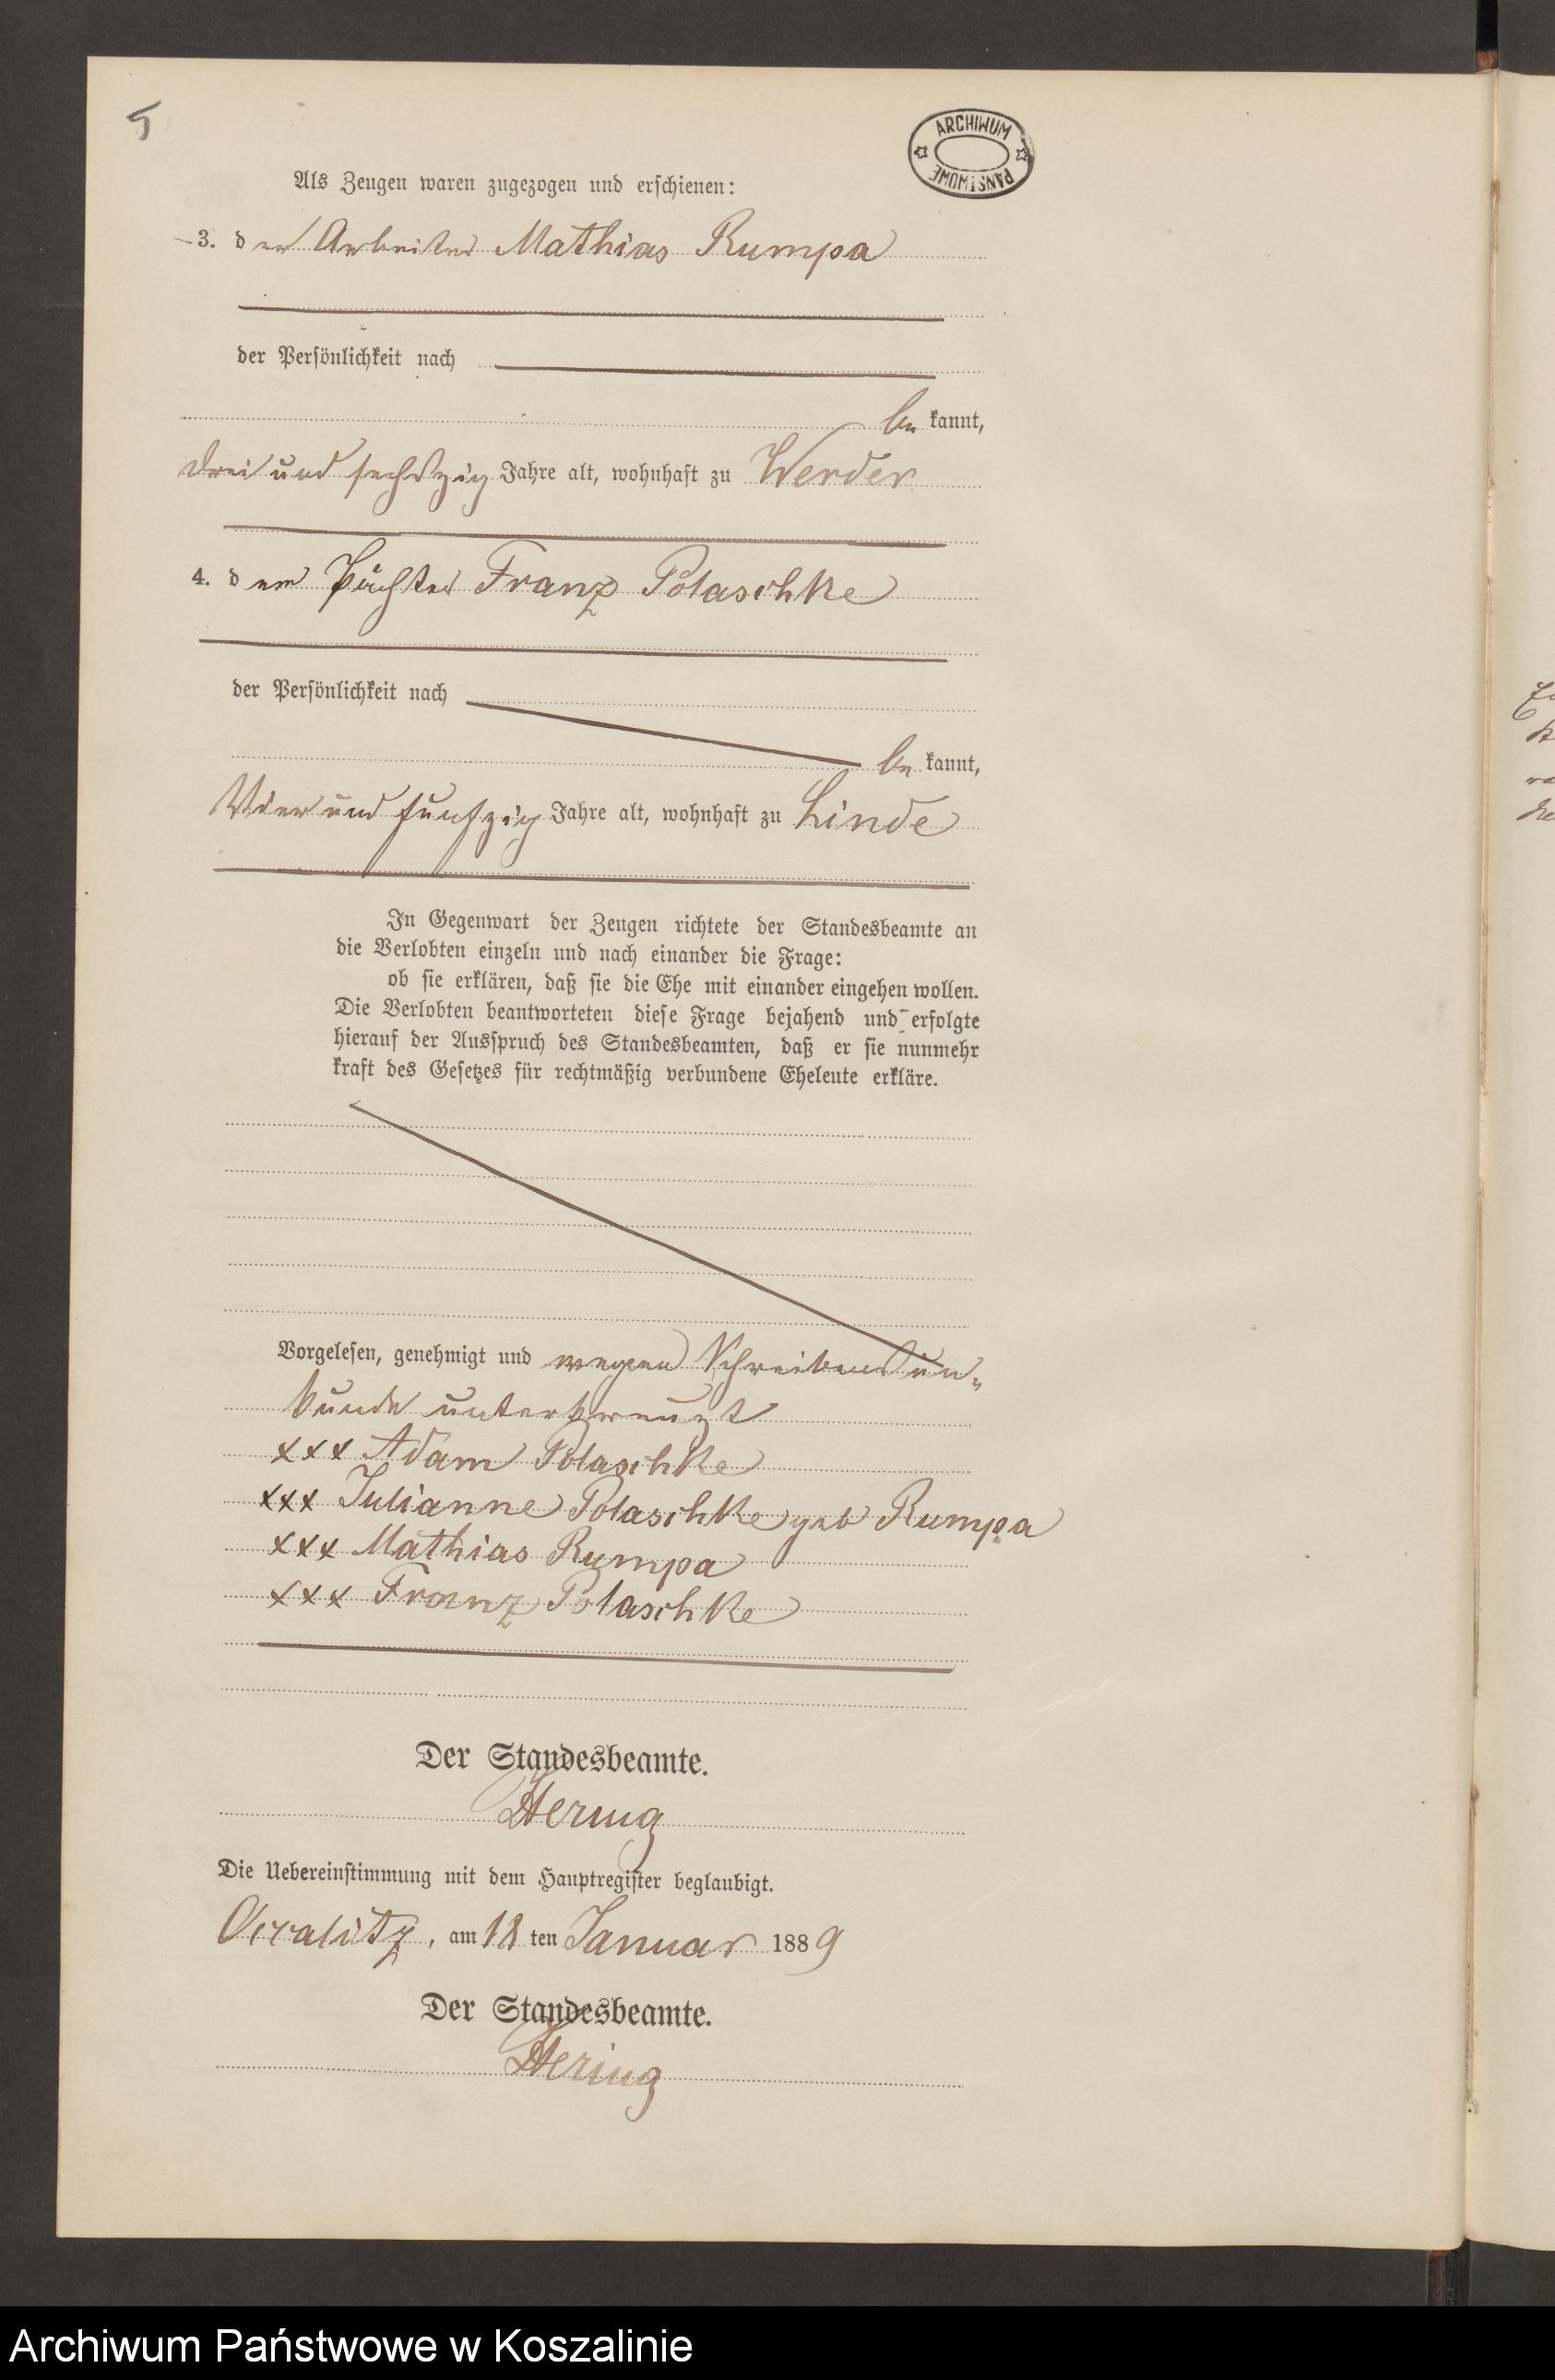 5
ARCHIWUM
PAŃSTWOWE
Als Zeugen waren zugezogen und erschienen:
3. der Arbeiter Mathias Rumpa
der Persönlichkeit nach
be kannt,
drei und sechszig Jahre alt, wohnhaft zu Werder
4. der Pächter Franz Polaschke
der Persönlichkeit nach
be kannt,
Vier und funfzig Jahre alt, wohnhaft zu Linde
In Gegenwart der Zeugen richtete der Standesbeamte an
die Verlobten einzeln und nach einander die Frage:
ob sie erklären, daß sie die Ehe mit einander eingehen wollen.
Die Verlobten beantworteten diese Frage bejahend und erfolgte
hierauf der Ausspruch des Standesbeamten, daß er sie nunmehr
kraft des Gesetzes für rechtmäßig verbundene Eheleute erkläre.
Vorgelesen, genehmigt und wegen Schreibens un-
kunde unterkreuzt
xxx Adam Polaschke
xxx Julianne Polaschke geb Rumpa
xxx Mathias Rumpa
xxx Franz Polaschke
Der Standesbeamte.
Hering
Die Uebereinstimmung mit dem Hauptregister beglaubigt.
am 18 ten Januar 1889
Der Standesbeamte.
Hering
Archiwum Państwowe w Koszalinie